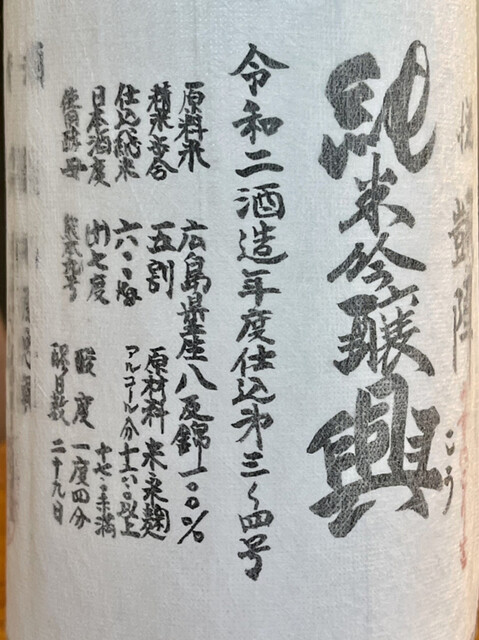 凱陣
純米吟醸興
こう
令和二酒造年度仕込第三〜四号
原料米 広島県産八反錦一〇〇%
精米歩合 五割 原材料 米、米麹
仕込総米 六〇〇kg アルコール分十六・〇以上
十七・〇未満
日本酒度 酸度 一度四分
使用酵母 熊本九号 醪日数 二十九日